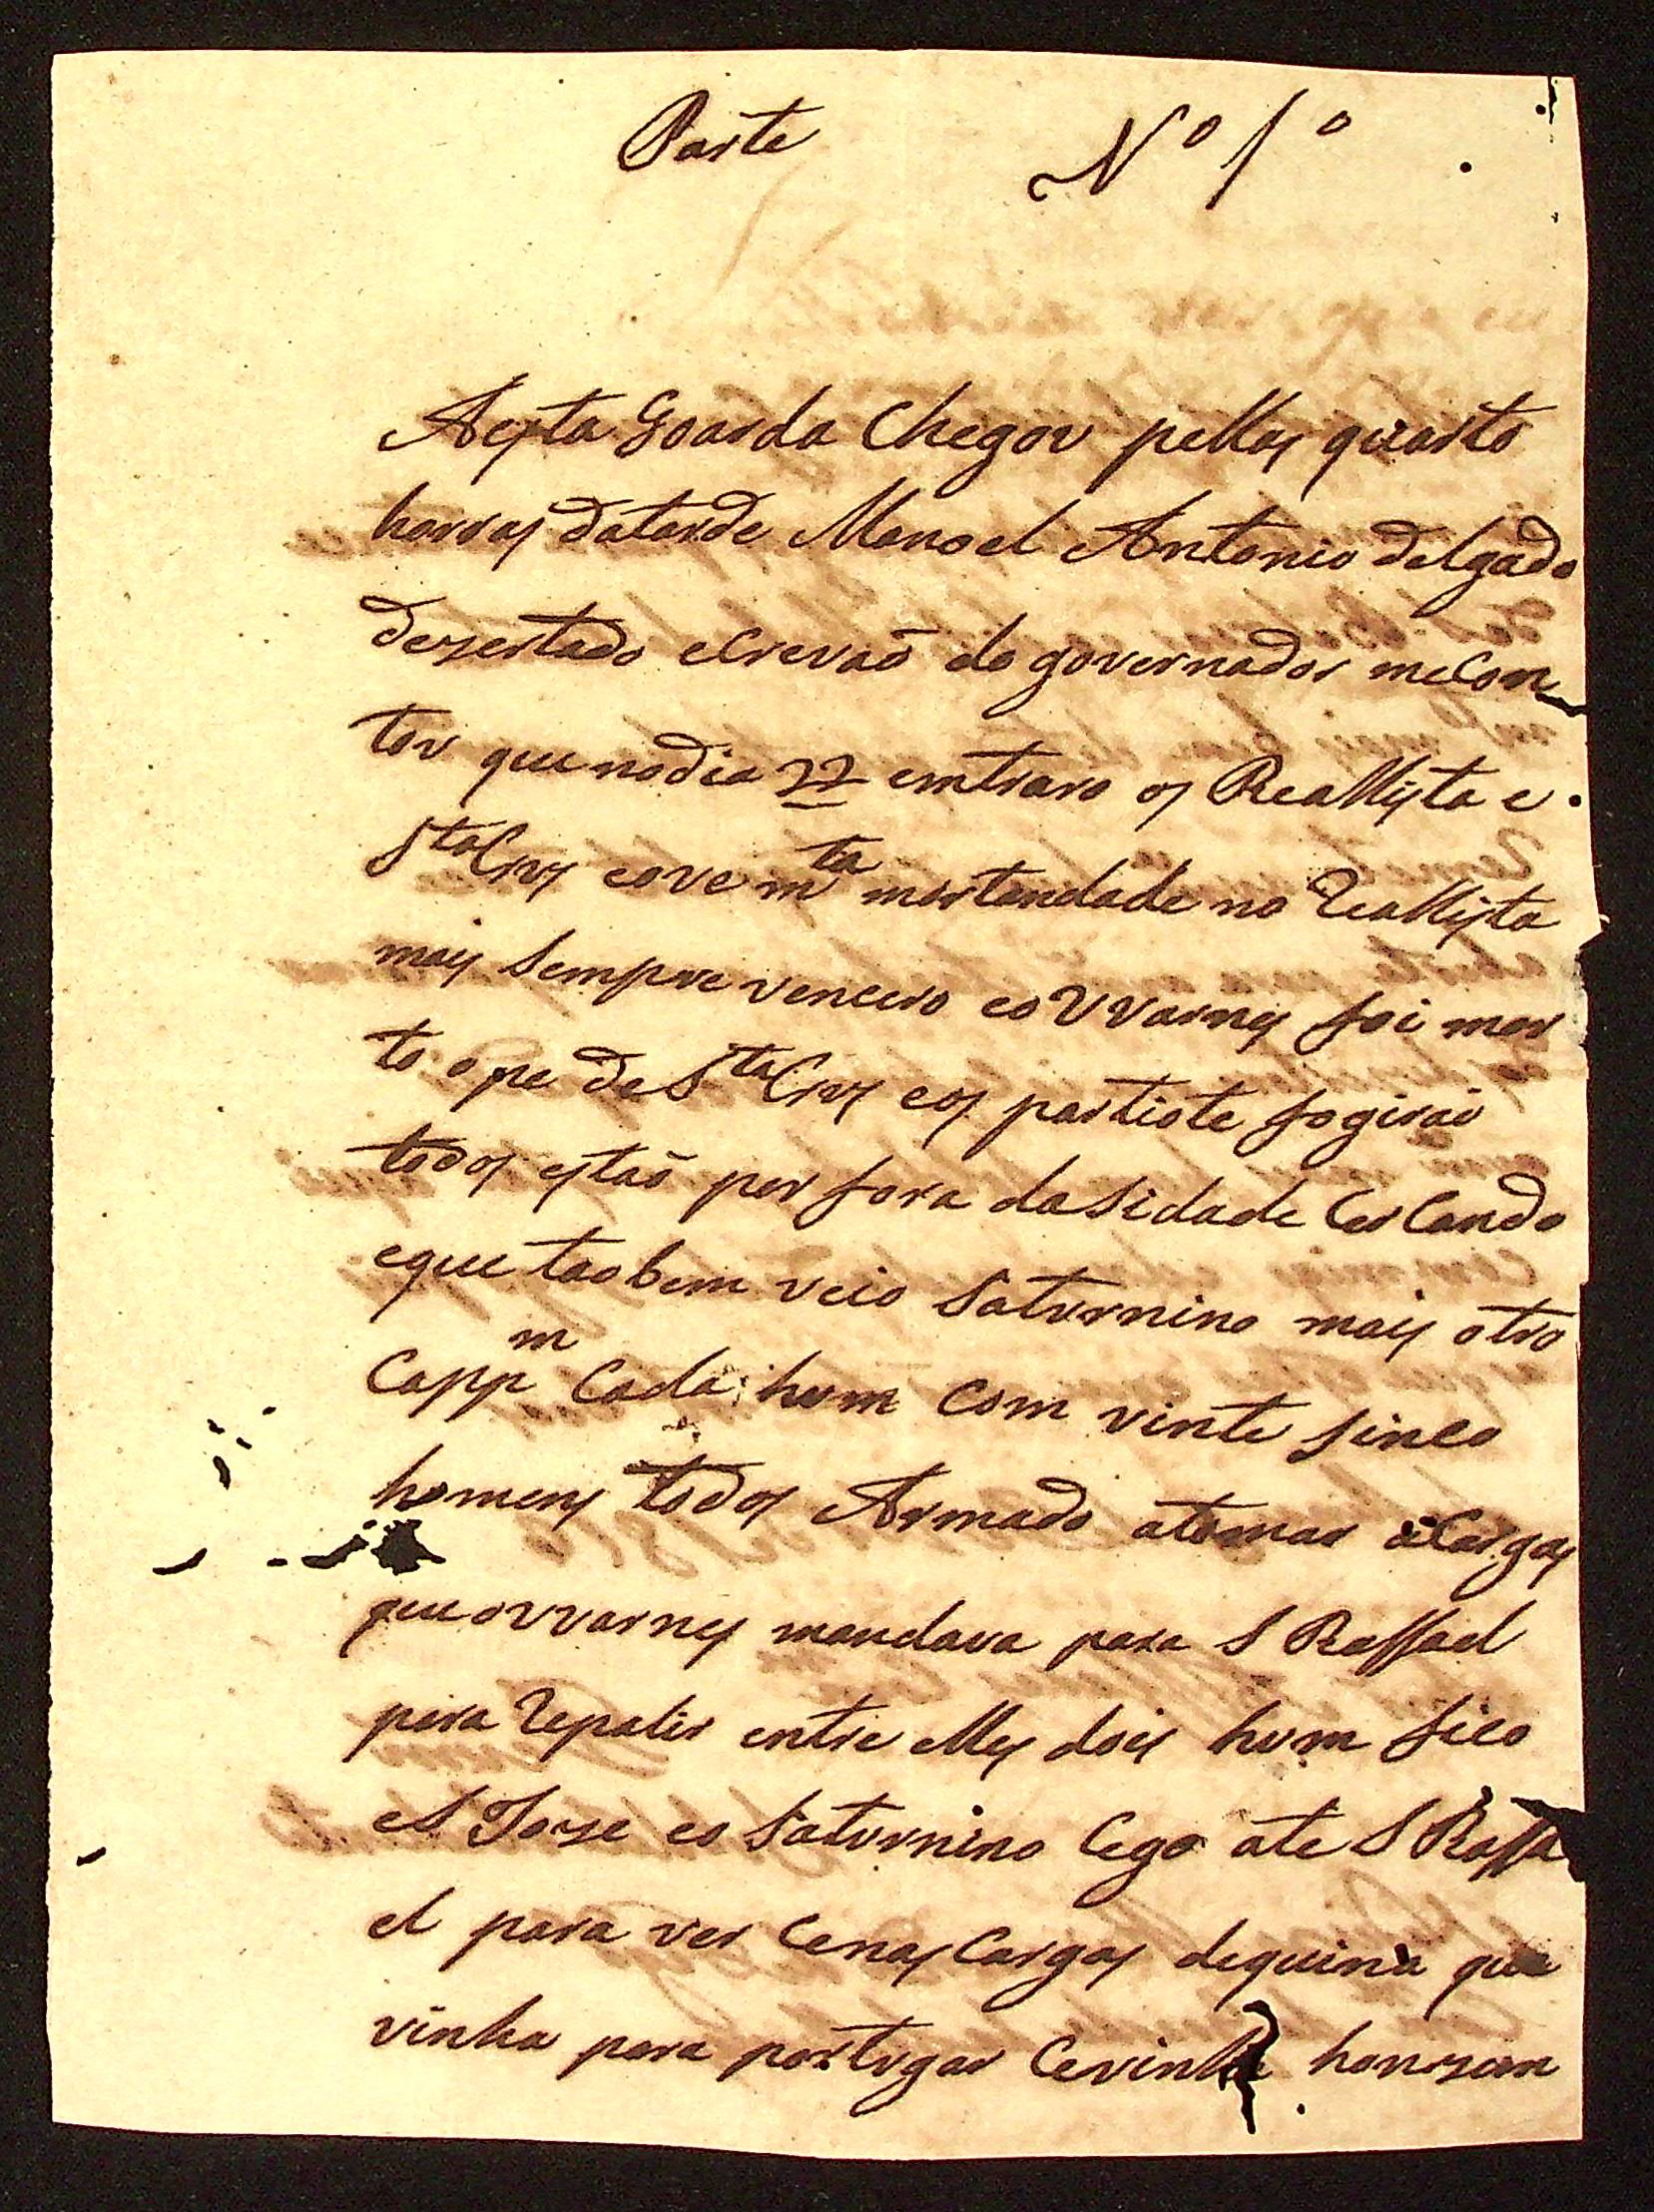 Parte Nº 1º
Aesta Goarda Chegov pellas quarto
horras datarde Manoel Antonio delgado
dezertado eCrevaõ do governador meCon
tov que nodia 22 emtraro os Reallista e
Sta Crus eove mta mortandade no Reallista
mais Sempre vencero eo VVarnes foi mor
to ope de Sta Crus eos partiote fogiraõ
todos estaõ por fora daSidade CerCando
eque taobem veio Saturnino mais otro
Cappm Cada hum Com vinte sinco
homens todos Armado atomar aCargas
que ovvarnes mandava para S Raffael
para Repatir entre elles dois hum fico
eS Joze eo Saturnino Cego ate S Raffa
el para ver Cenas Cargas dequina que
vinha para portugar Cevinha honrzem